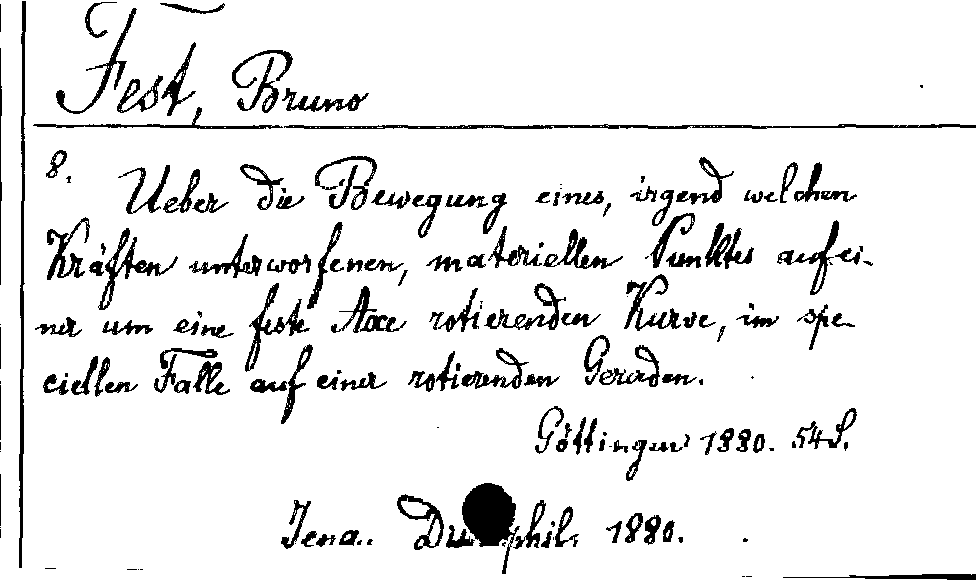 Fest, Bruno
8.
Ueber die Bewegung eines, irgend welchen
Kräften unterworfenen, materiellen Punktes auf ei-
ner um eine feste Axe rotierenden Kurve, im spe-
ciellen Falle auf einer rotierenden Geraden.
Göttingen 1880. 54 S.
Jena. phil. 1880.